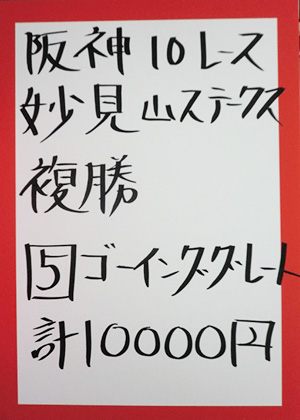 阪神10レース
妙見山ステークス
複勝
5 ゴーインググレート
計10000円